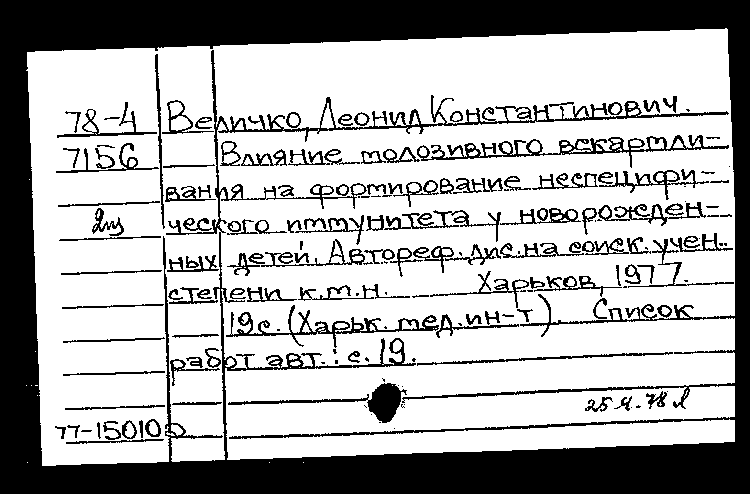 78-4 Величко, Леонид Константинович.
7156 Влияние молозивного вскармли-
вания на формирование неспецифи-
2 ческого иммунитета у новорожден-
ных детей. Автореф. дис. на соиск. учен.
степени к.м.н. Харьков, 1977.
19с. (Харьк. мед. ин-т). Список
работ авт.: с. 19.
77-15010